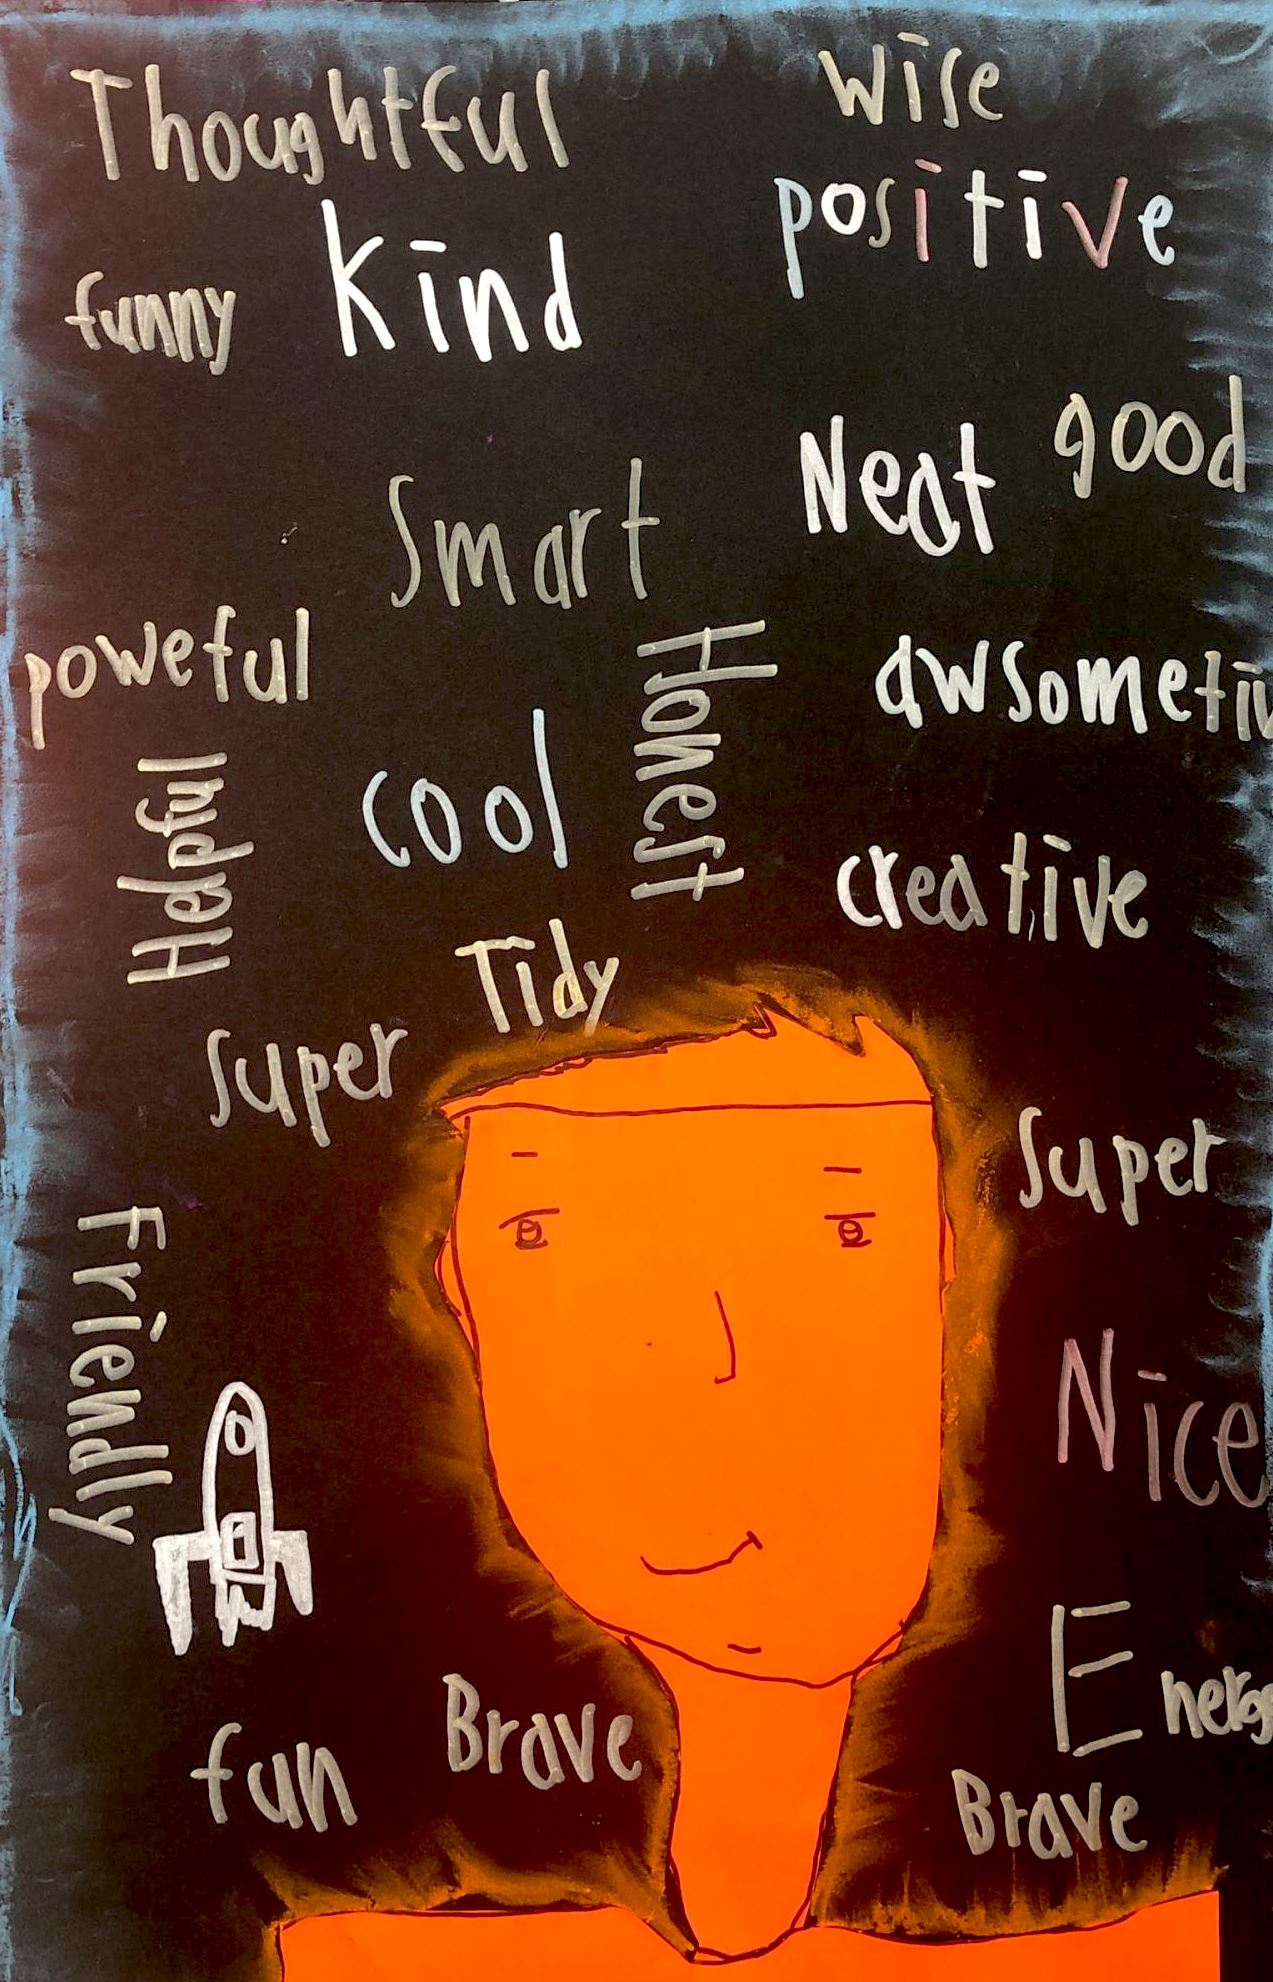 Thoughtful
wise
positive
funny
kind
good
Neat
Smart
poweful
Honest
awsometiv
Helpful
cool
creative
Tidy
super
super
Friendly
Nice
Energ
Brave
fun
Brave